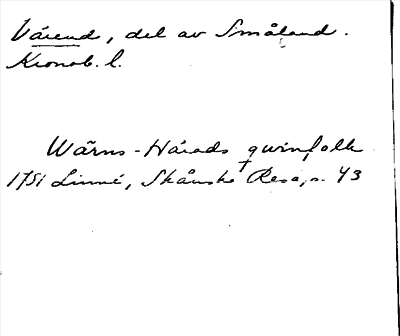 Värend, del av Småland.
Kronob. l.
Wärns-Härads qwinfolk
1751 Linné, Skånska Resa, s. 43